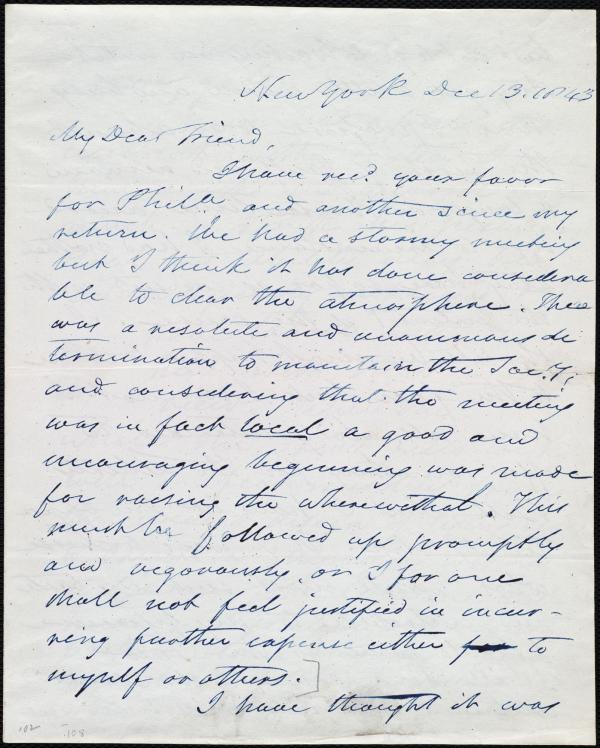 New York Dec 13. 1843
My Dear Friend,
I have recd your favor
for Phila and another since my
return. We had a stormy meeting
but I think it has done considera
ble to clear the atmosphere. There
was a resolute and unanimous de
termination to maintain the Soc.y;
and considering that the meeting
was in fact local a good and
encouraging beginning was made
for raising the wherewithal. This
must be followed up promptly
and vigorously, or I for one
shall not feel justified in incur-
ring further expense either for to
myself or others.]
I have thought it was
102 .108